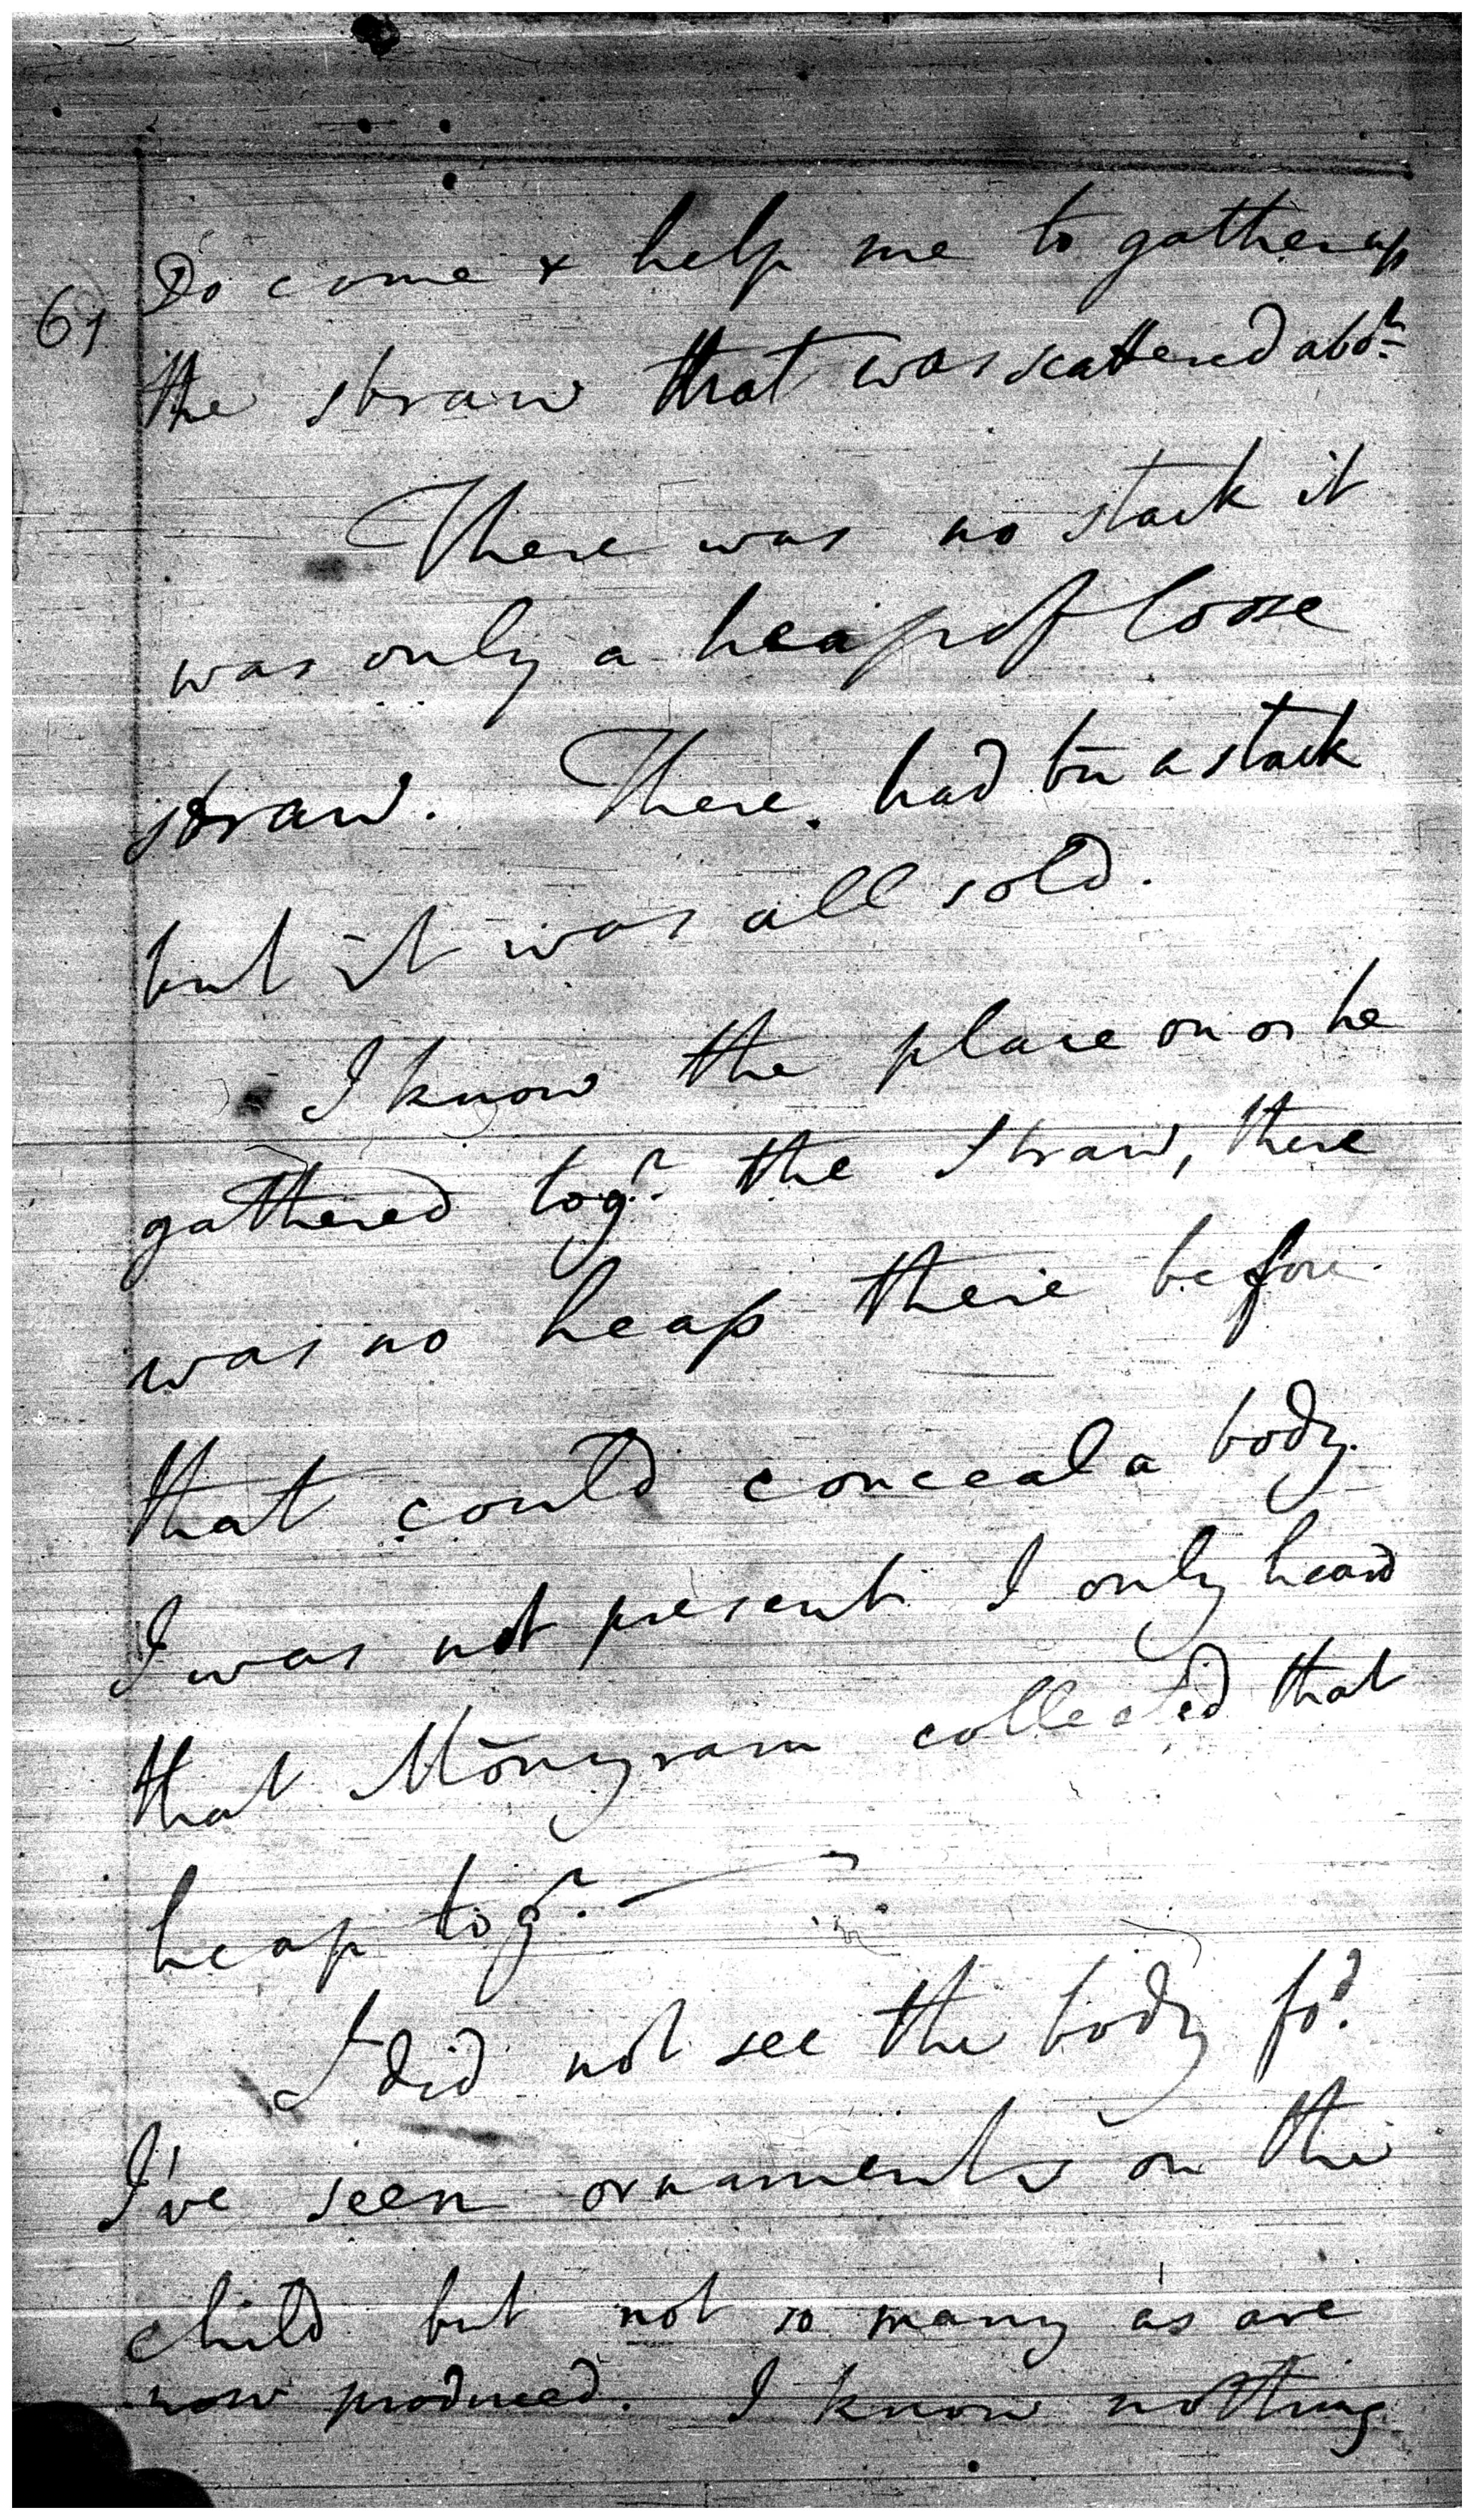 61
Do come & help me to gather up
the straw that was scattered abo.t
There was no stack it
was only a heap of loose
straw. There had bn a stack
but it was all sold.
I know the place on
gathered tog.r the straw, there
was no heap there before
that could conceal a body.
I was not present I only heard
that collected that
heap tog.r
I did not see the body fo.d
I've seen ornaments on the
child but not so many as are
now produced. I know nothing